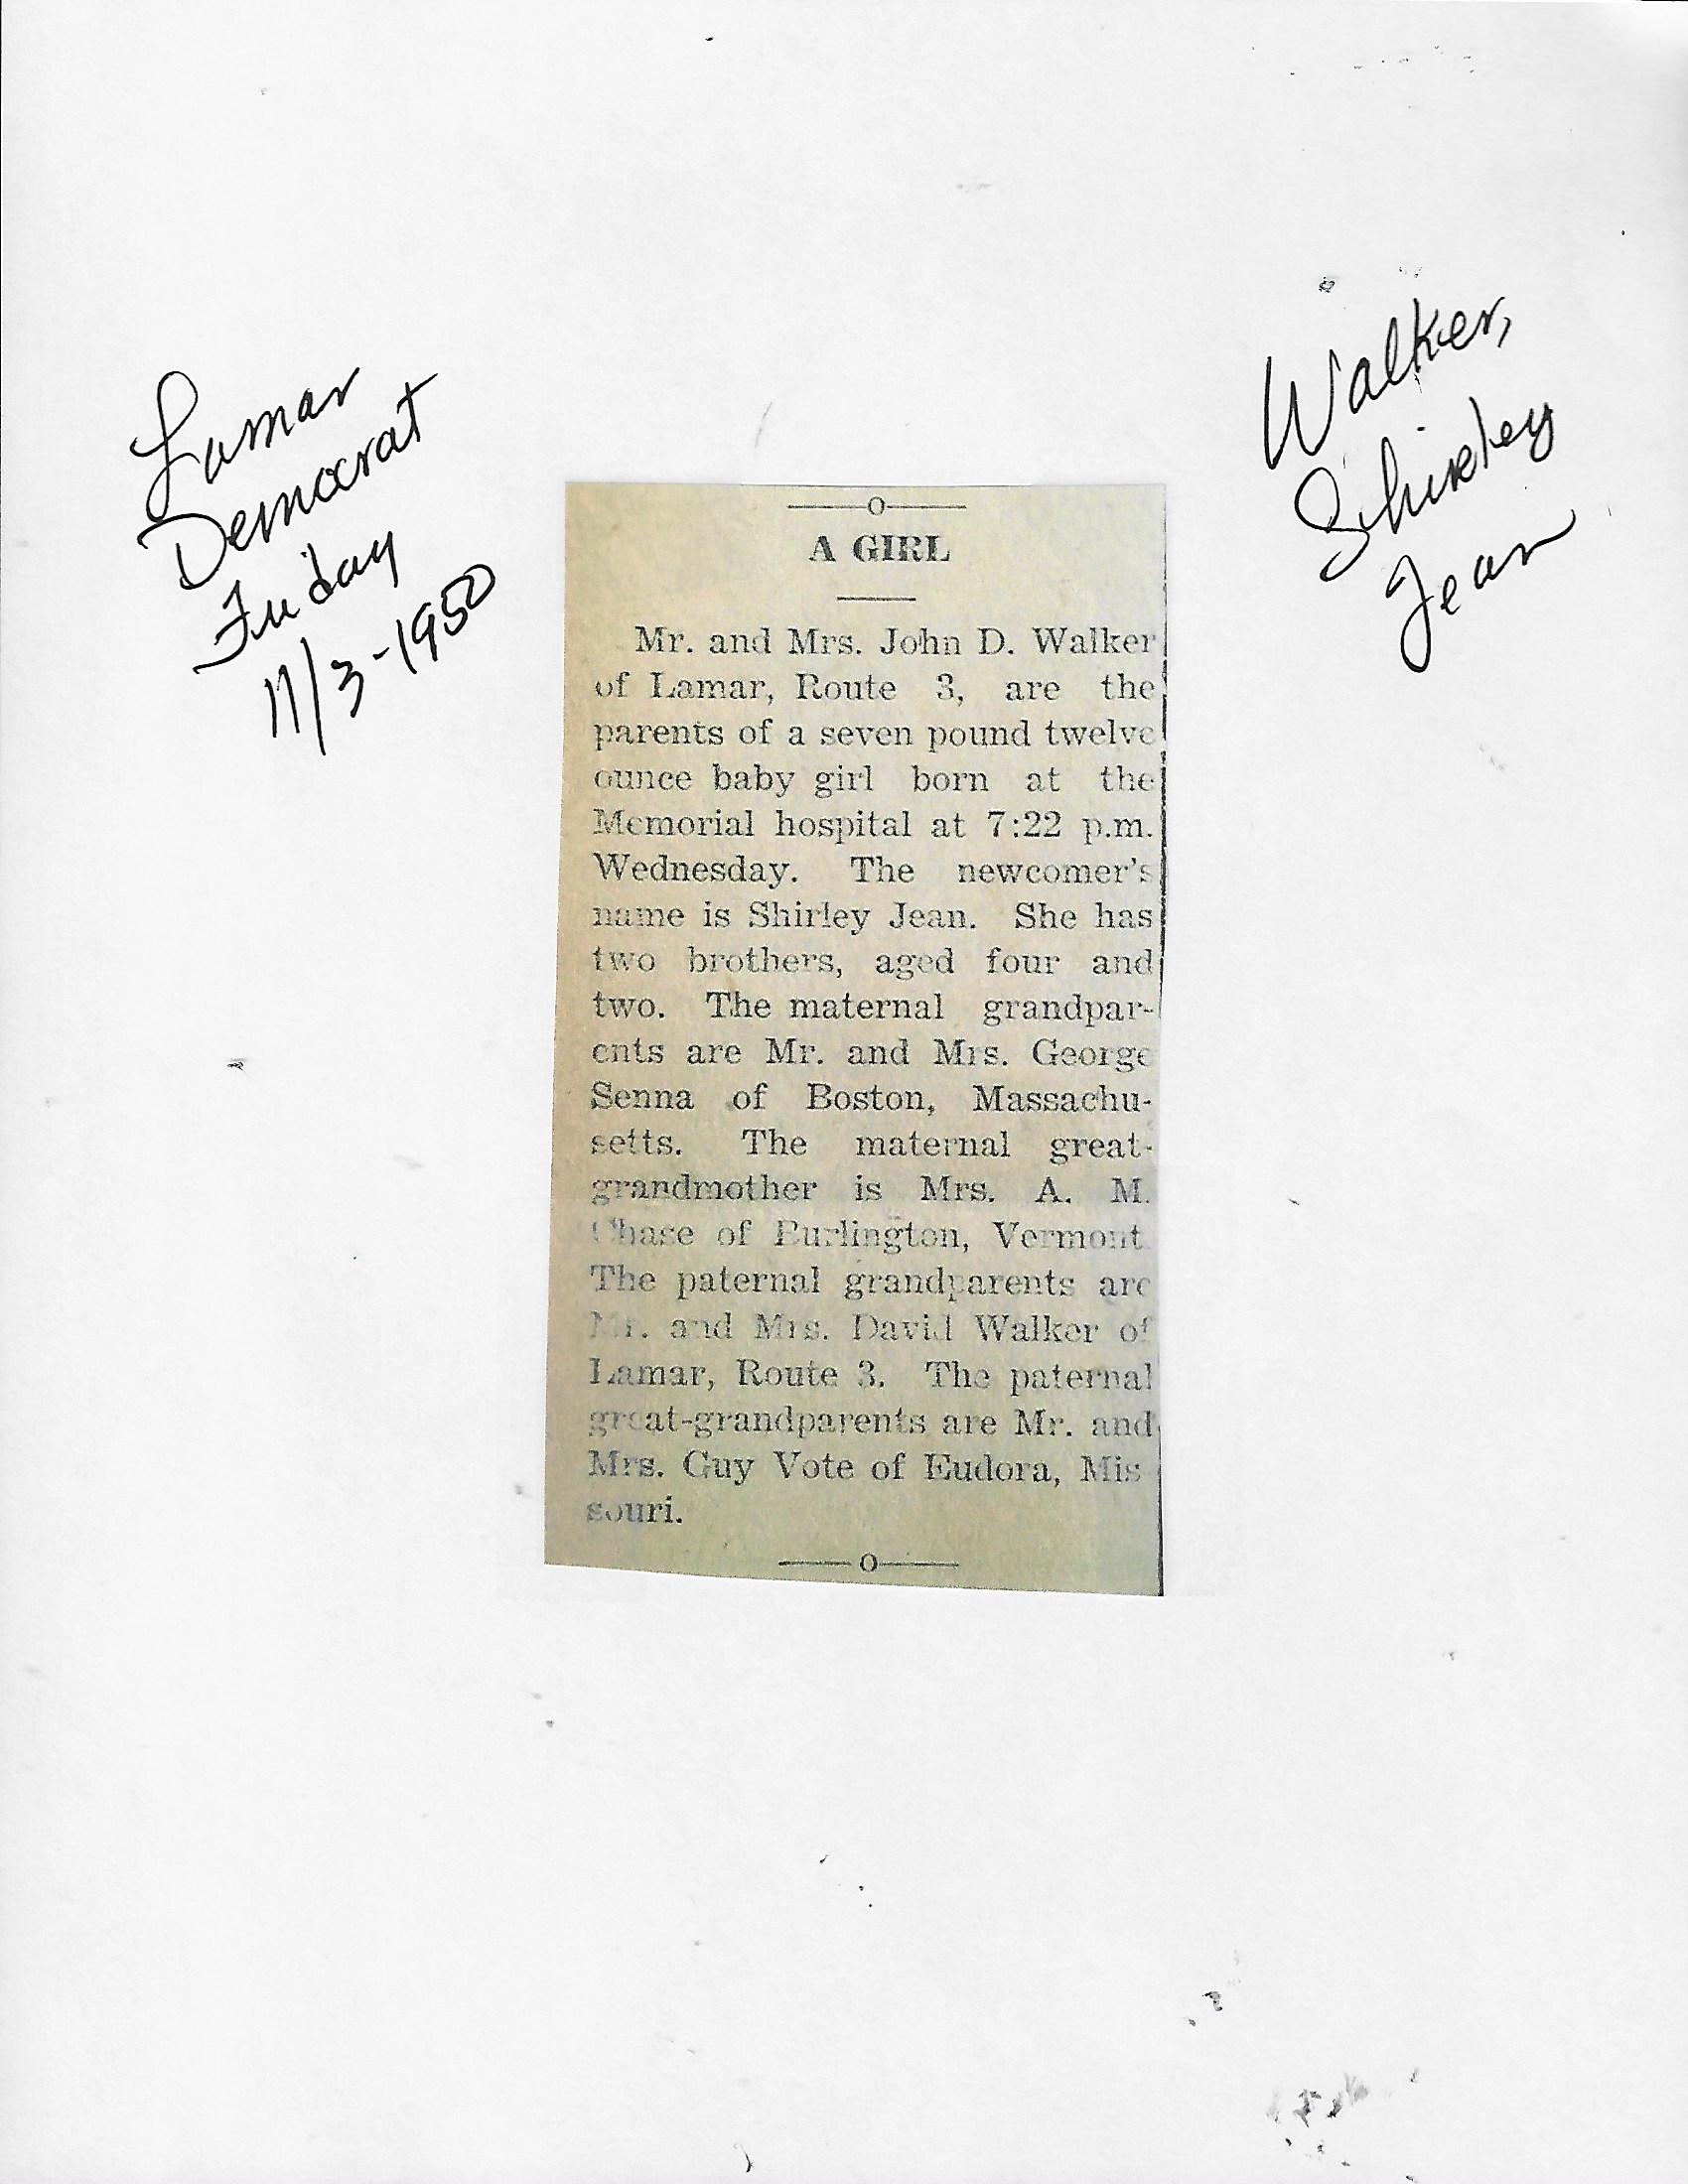 Lamar
Democrat
Friday
11/3-1950
Walker,
Shirley
Jean
A GIRL
Mr. and Mrs. John D. Walker
of Lamar, Route 3, are the
parents of a seven pound twelve
ounce baby girl born at the
Memorial hospital at 7:22 p.m.
Wednesday. The newcomer's
name is Shirley Jean. She has
two brothers, aged four and
two. The maternal grandpar-
ents are Mr. and Mrs. George
Senna of Boston, Massachu-
setts. The maternal great-
grandmother is Mrs. A. M.
Chase of Burlington, Vermont.
The paternal grandparents are
Mr. and Mrs. David Walker of
Lamar, Route 3. The paternal
great-grandparents are Mr. and
Mrs. Guy Vote of Eudora, Mis
souri.